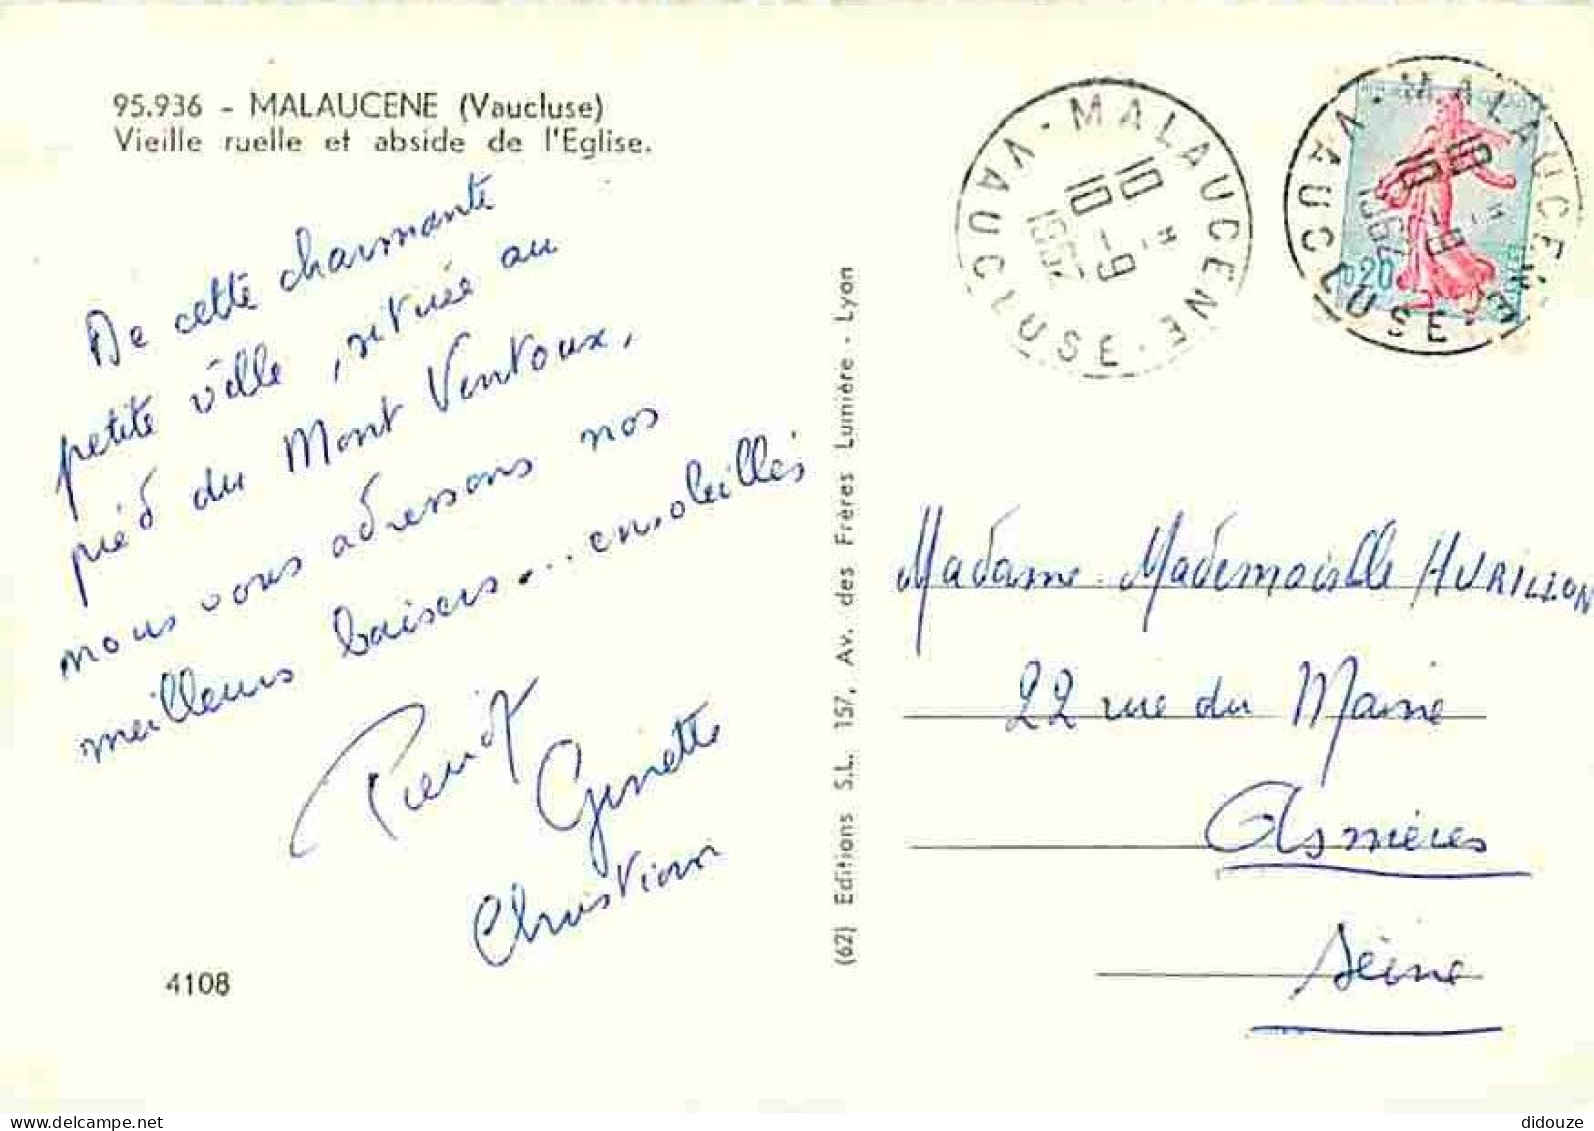 95.936 - MALAUCENE (Vaucluse)
Vieille ruelle et abside de l'Eglise.
De cette charmante
petite ville, située au
pied du Mont Ventoux,
nous vous adressons nos
meilleurs baisers... ensoleillés
Ginette
Christian
4108
(62) Editions S.L. 157, Av. des Frères Lumière - Lyon
MALAUCENE
VAUCLUSE
10 10
1 - 9
1962
MALAUCENE
VAUCLUSE
1962
0,20
Madame Mademoiselle HURILLON
22 rue du Maine
Asnières
Seine
didouze